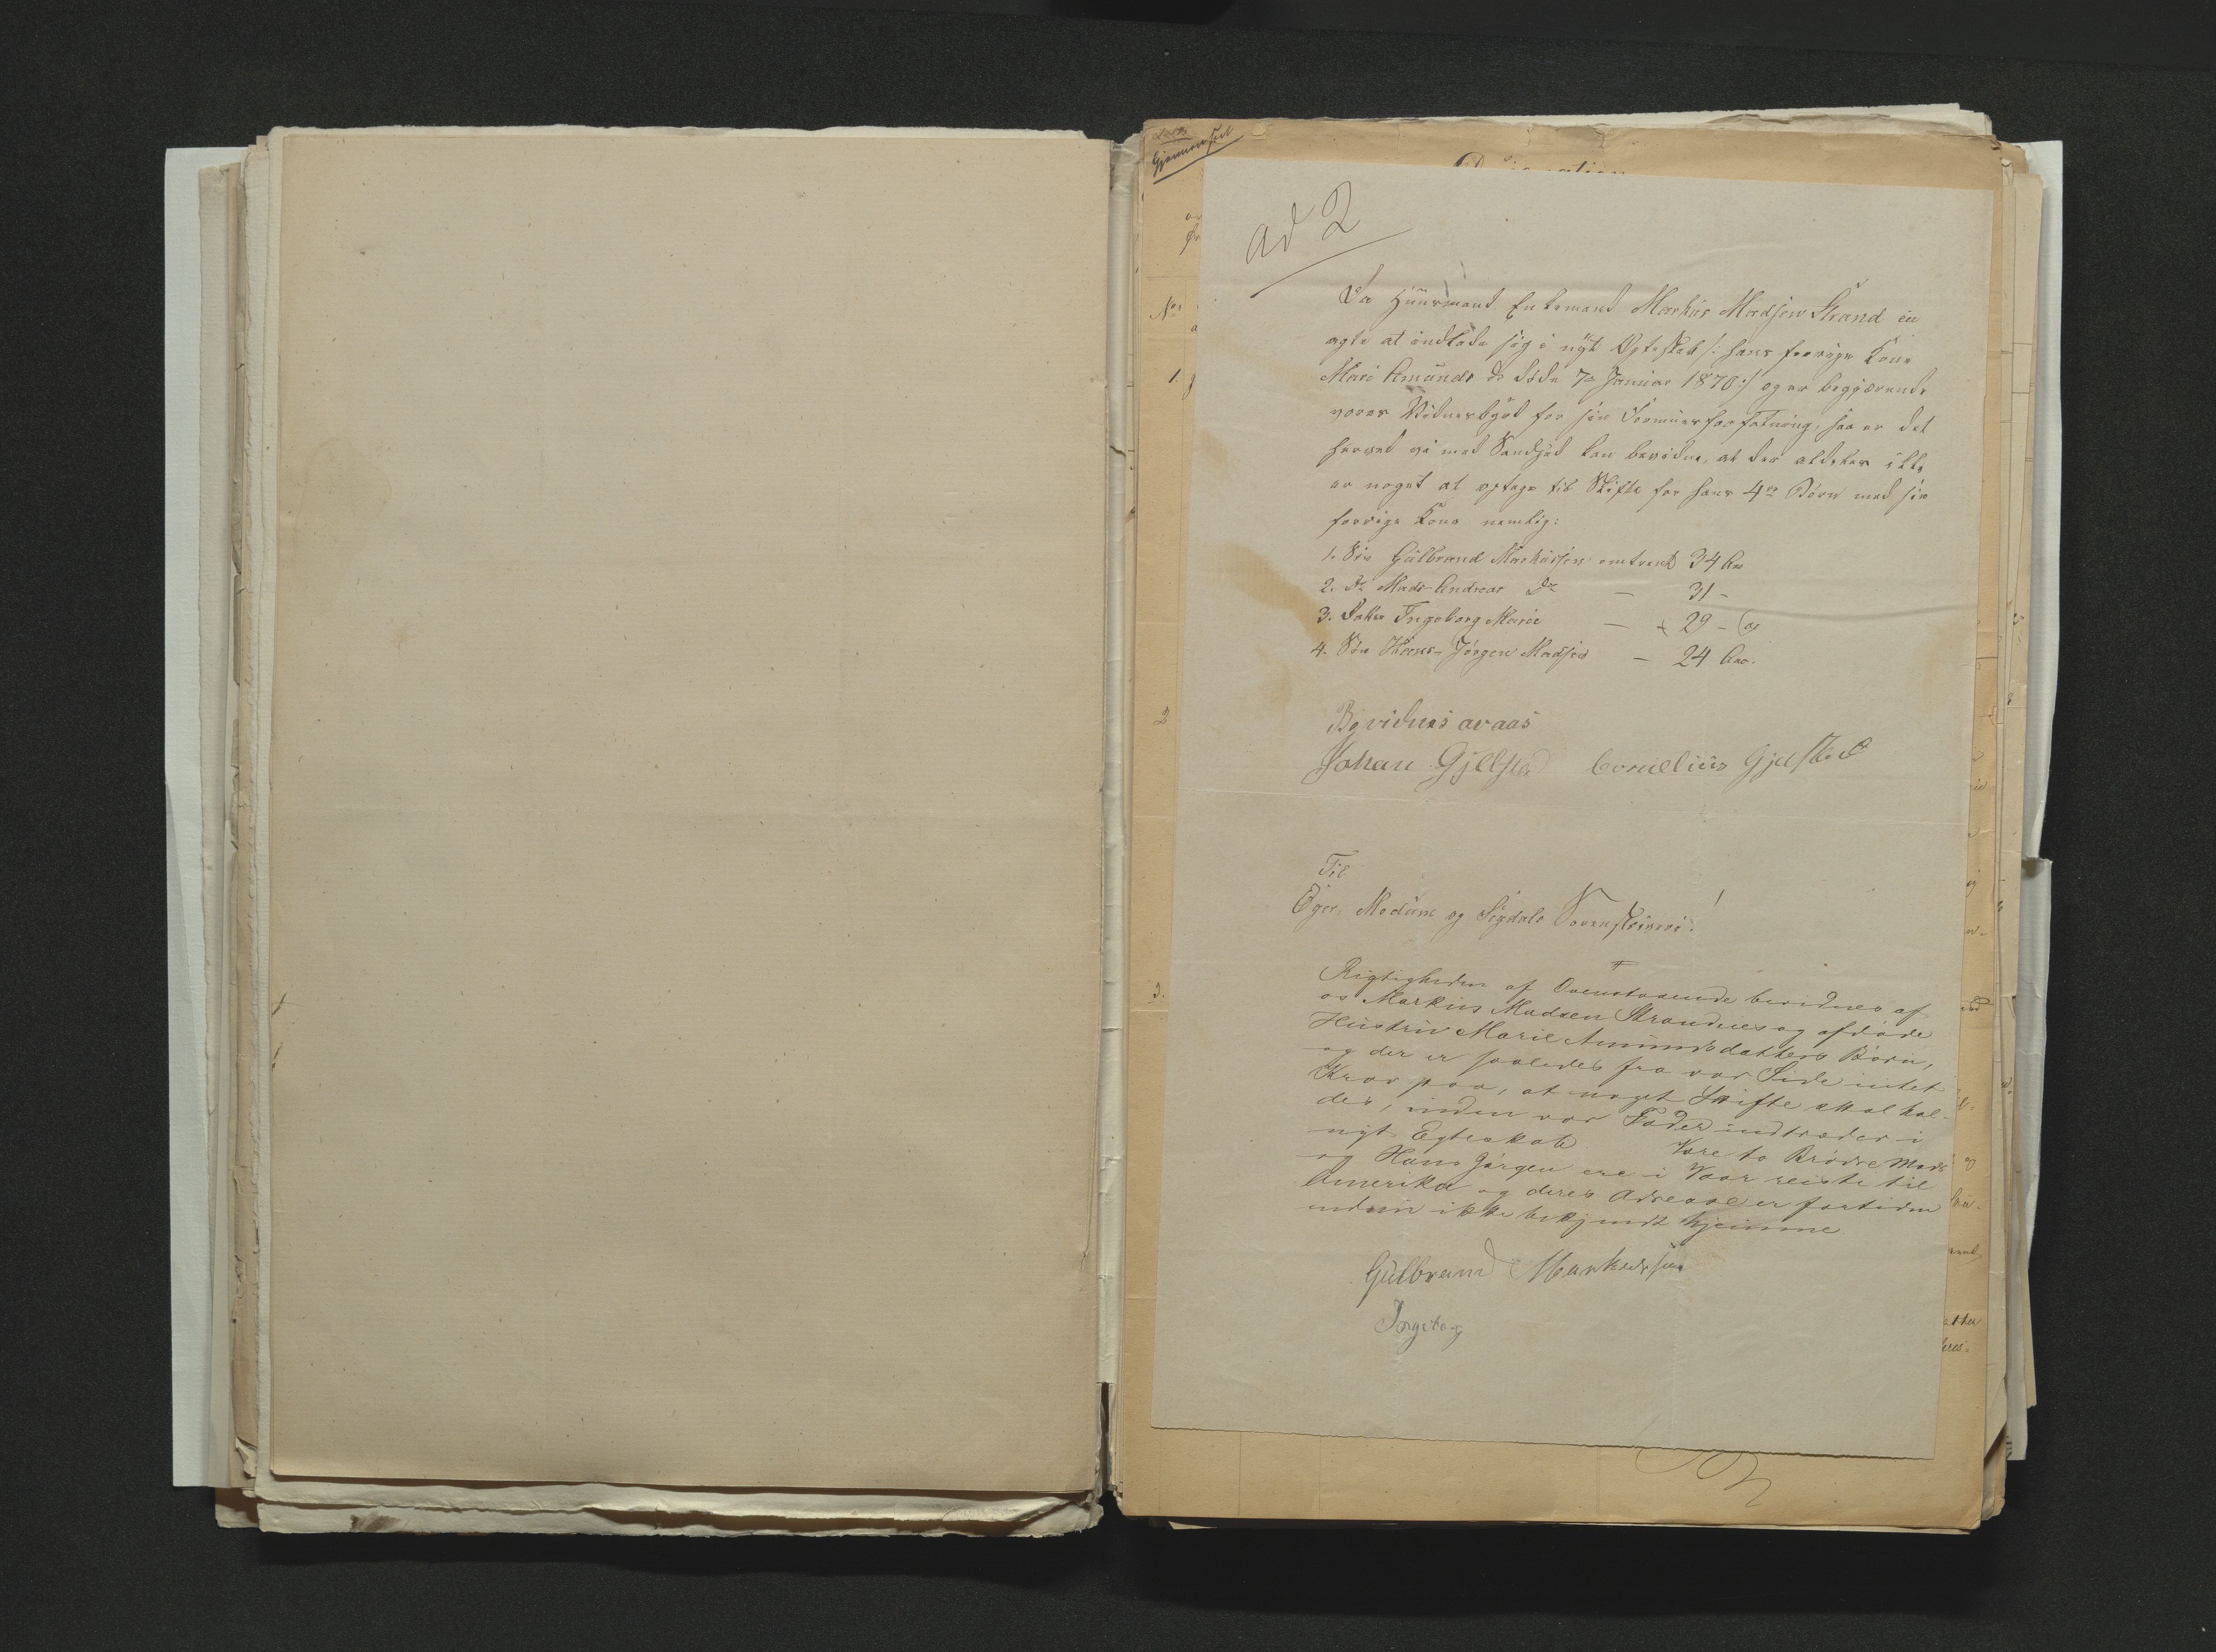 Gjennemseet
ad 2
No
1.
2
3.
Da Huusmand Enkemand Markus Madsen Strand en
agte at indlade sig i nyt Egteskab /: hans forrige Kone
Mari Amunds d døde 7de Januar 1870:/ og er begjærende
vores Vidnesbyrd for sin Formuesforfatning, saa er det
herved vi med Sandhed kan bevidne, at der aldeles ikke
er noget at optage til Skifte for hans 4re Børn med sin
forrige Kone nemlig:
1. Søn Gulbrand Markussen omtrent 34 Aar
2. Do Mads Andreas Do — 31 -
3. Datter Ingeborg Marie — 29 -
4. Søn Hans-Jörgen Madsen — 24 Aar.
Bevidnes av aas
Johan Gjelsted Cornelius Gjelsted
Til
Eger, Modum og Sigdals Sorenskriveri!
Rigtigheden af Ovenstaaende bevidnes af
os Markus Madsen Strandeies og afdöde
Hustru Marie Amundsdatters Börn,
og der er saaledes fra vor Side intet
Krav paa, at noget Skifte skal hol-
des, inden vor Fader indtræder i
nyt Egteskab Vore to Brödre Mads
og Hans Jörgen ere i Vaar reiste til
Amerika og deres Adresse er fortiden
endnu ikke bekjendt hjemme
Gulbrand Markussen
Ingebor g